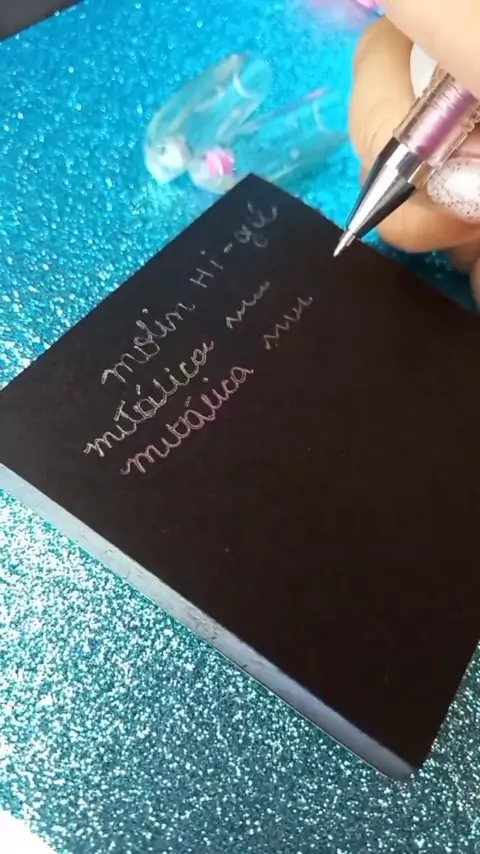 molin Hi-gel
mitálica
metálica